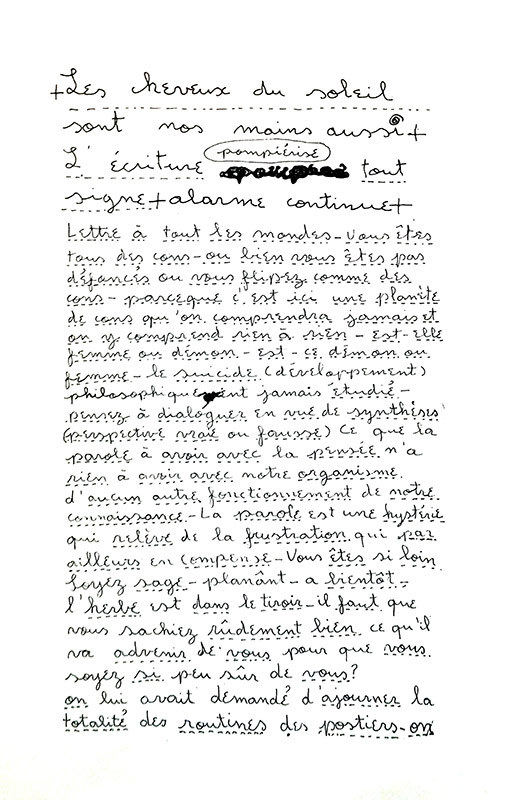 +Les cheveux du soleil
sont nos mains aussi+
pompiérise
L'écriture tout
signe+alarme continue+
Lettre à tout les mondes-vous êtes
tous des cons-ou bien vous êtes pas
déjancés ou vous flipez comme des
cons-parceque c'est ici une planète
de cons qu'on comprendra jamais et
on y comprend rien à rien-est-elle
femme ou démon-est-ce démon ou
femme-le suicide (développement)
philosophiquement jamais étudié-
pensez à dialoguer en vue de synthésis
(perspective vraie ou fausse) Ce que la
parole à avoir avec la pensée n'a
rien à avoir avec notre organisme
d'aucun autre fonctionnement de notre
connaissance-La parole est une hystérie
qui relève de la frustration qui par
ailleurs en compense-Vous êtes si loin
Soyez sage-planânt-a bientôt-
l'herbe est dans le tiroir-il faut que
vous sachiez rûdement bien ce qu'il
va advenir de vous pour que vous
soyez si peu sûr de vous?
on lui avait demandé d'ajourner la
totalité des routines des postiers-on